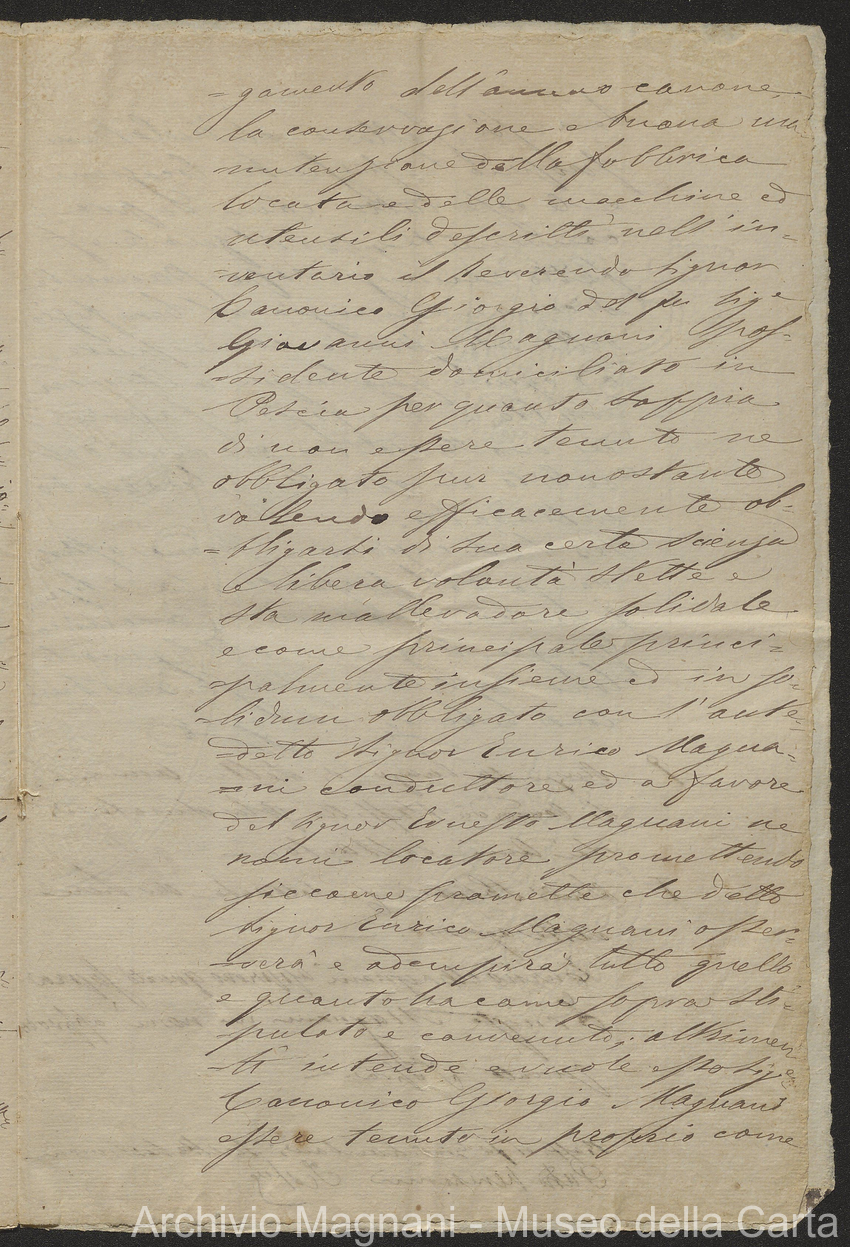 =gamento dell'annuo canone,
la conservazione e buona ma
nutenzione della fabbrica
locata e delle macchine ed
utensili descritti nell'in=
=ventario il Reverendo Signor
Canonico Giorgio del fu Sig.e
Giovanni Magnani pos=
=sidente domiciliato in
Pescia per quanto sappia
di non essere tenuto ne
obbligato pur nonostante
volendo efficacemente ob=
=bligarsi di sua certa scienza
e libera volontà stette e
sta mallevadore solidale
e come principale princi=
=palmente insieme ed in so=
=lidum obbligato con l'ante=
=detto Signor Enrico Magna=
=ni conduttore ed a favore
del Signor Ernesto Magnani ne
nomi locatore promettendo
siccome promette che detto
Signor Enrico Magnani osser=
=verà e adempirà tutto quello
e quanto ha come sopra sti=
pulato e convenuto; altrimen
ti intende e vuole esso Sig.e
Canonico Giorgio Magnani
essere tenuto in proprio come
Archivio Magnani - Museo della Carta